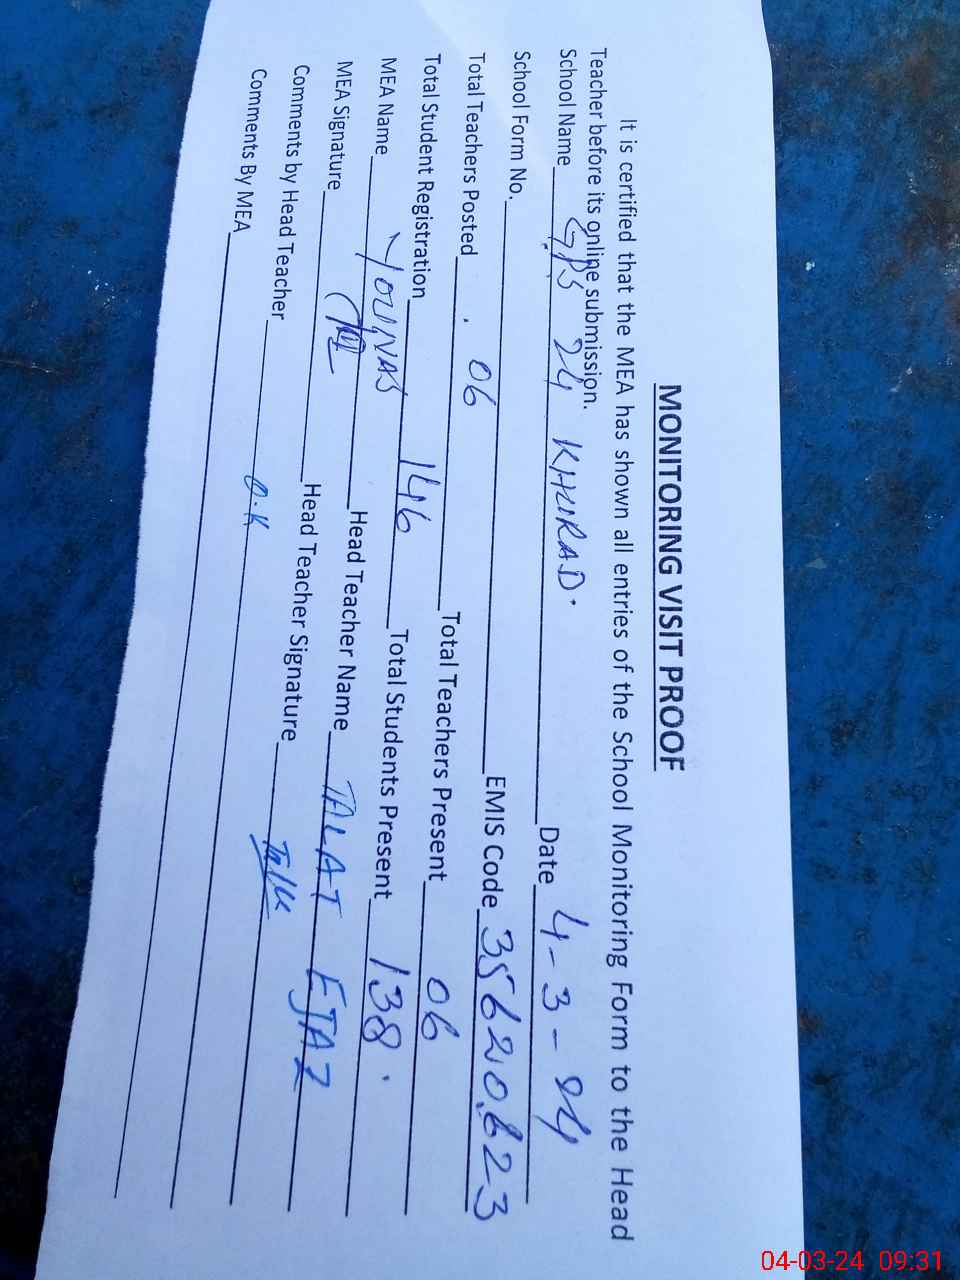 MONITORING VISIT PROOF
It is certified that the MEA has shown all entries of the School Monitoring Form to the Head
Teacher before its online submission.
School Name GPS 24 KHURAD. Date 4-3-24
School Form No. EMIS Code 35620623
Total Teachers Posted 06 Total Teachers Present 06
Total Student Registration 146 Total Students Present 138.
MEA Name YOUNAS Head Teacher Name TALAT EJAZ
MEA Signature Head Teacher Signature
Comments by Head Teacher O.K
Comments By MEA
04-03-24 09:31